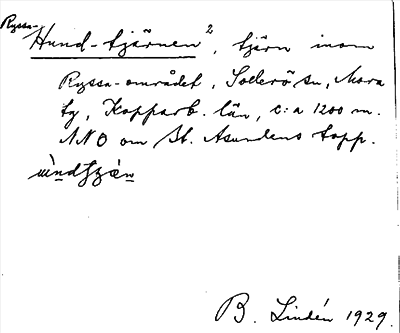 Ryssa-
Hund-tjärnen 2, tjärn inom
Ryssa-området, Sollerö sn, Mora
tg, Kopparb. län, c:a 1200 m.
NNO om St. Asundens topp.
B. Lindén 1929.